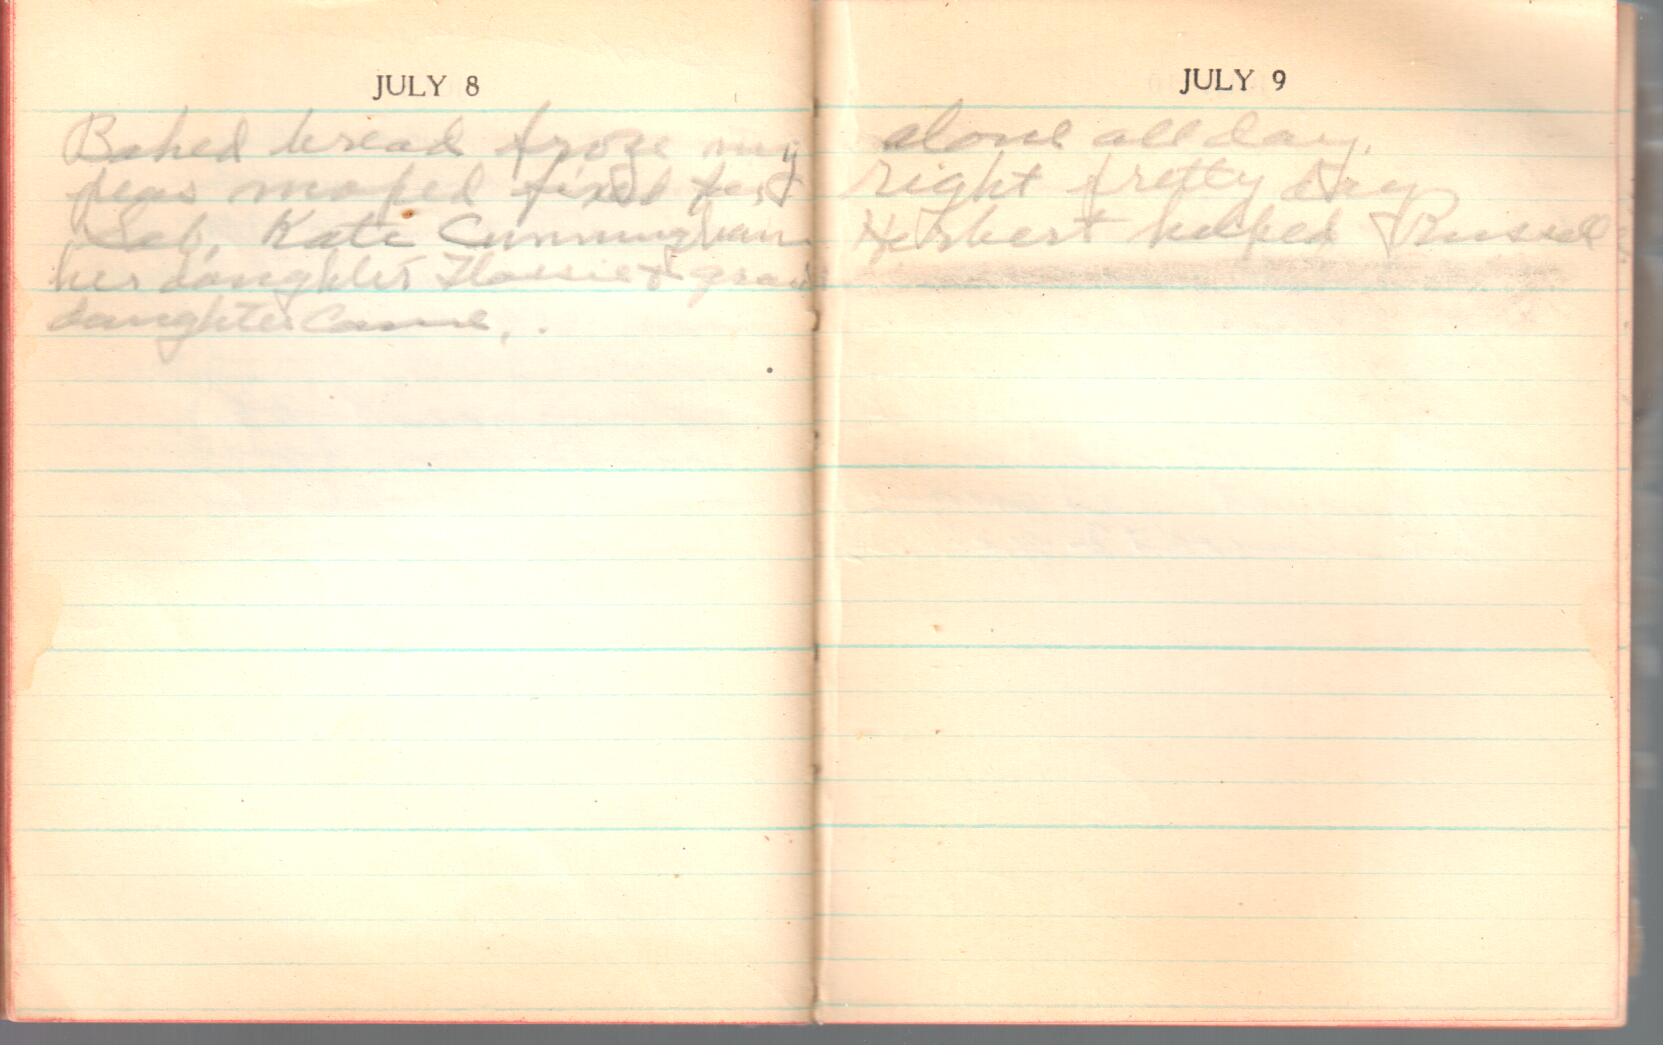 JULY 8
Baked bread froze my
peas moped
Seb, Kate Cunningham
her daughter Flossie & grand
daughter came.
JULY 9
alone all day.
right pretty day
Herbert helped Russell